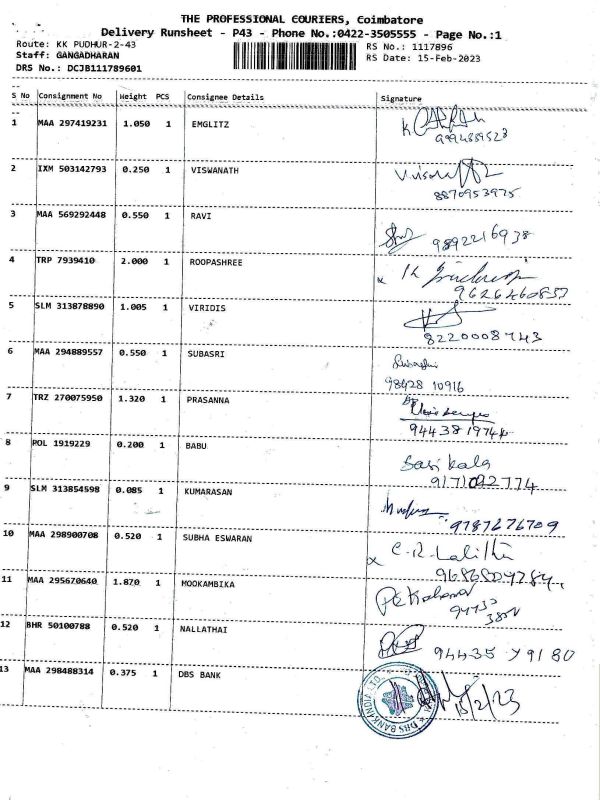 THE PROFESSIONAL COURIERS, Coimbatore
Delivery Runsheet - P43 - Phone No.:0422-3505555 - Page No.:1
Route: KK PUDHUR-2-43 RS No.: 1117896
Staff: GANGADHARAN RS Date: 15-Feb-2023
DRS No.: DCJB111789601
S No Consignment No Weight PCS Consignee Details Signature
1 MAA 297419231 1.050 1 EMGLITZ
9994889523
2 IXM 503142793 0.250 1 VISWANATH
8870953975
3 MAA 569292448 0.550 1 RAVI
9892216938
4 TRP 7939410 2.000 1 ROOPASHREE
9626460857
5 SLM 313878890 1.005 1 VIRIDIS
8220008743
6 MAA 294889557 0.550 1 SUBASRI
98428 10916
7 TRZ 270075950 1.320 1 PRASANNA
9443819744
8 POL 1919229 0.200 1 BABU
Sasi kala
9171092774
9 SLM 313854598 0.085 1 KUMARASAN
9787676709
10 MAA 298900708 0.520 1 SUBHA ESWARAN
C.R. Lalitha
11 MAA 295670640 1.870 1 MOOKAMBIKA
12 BHR 50100788 0.520 1 NALLATHAI
94435 79180
13 MAA 298488314 0.375 1 DBS BANK
DBS BANK INDIA LTD.
15/2/23